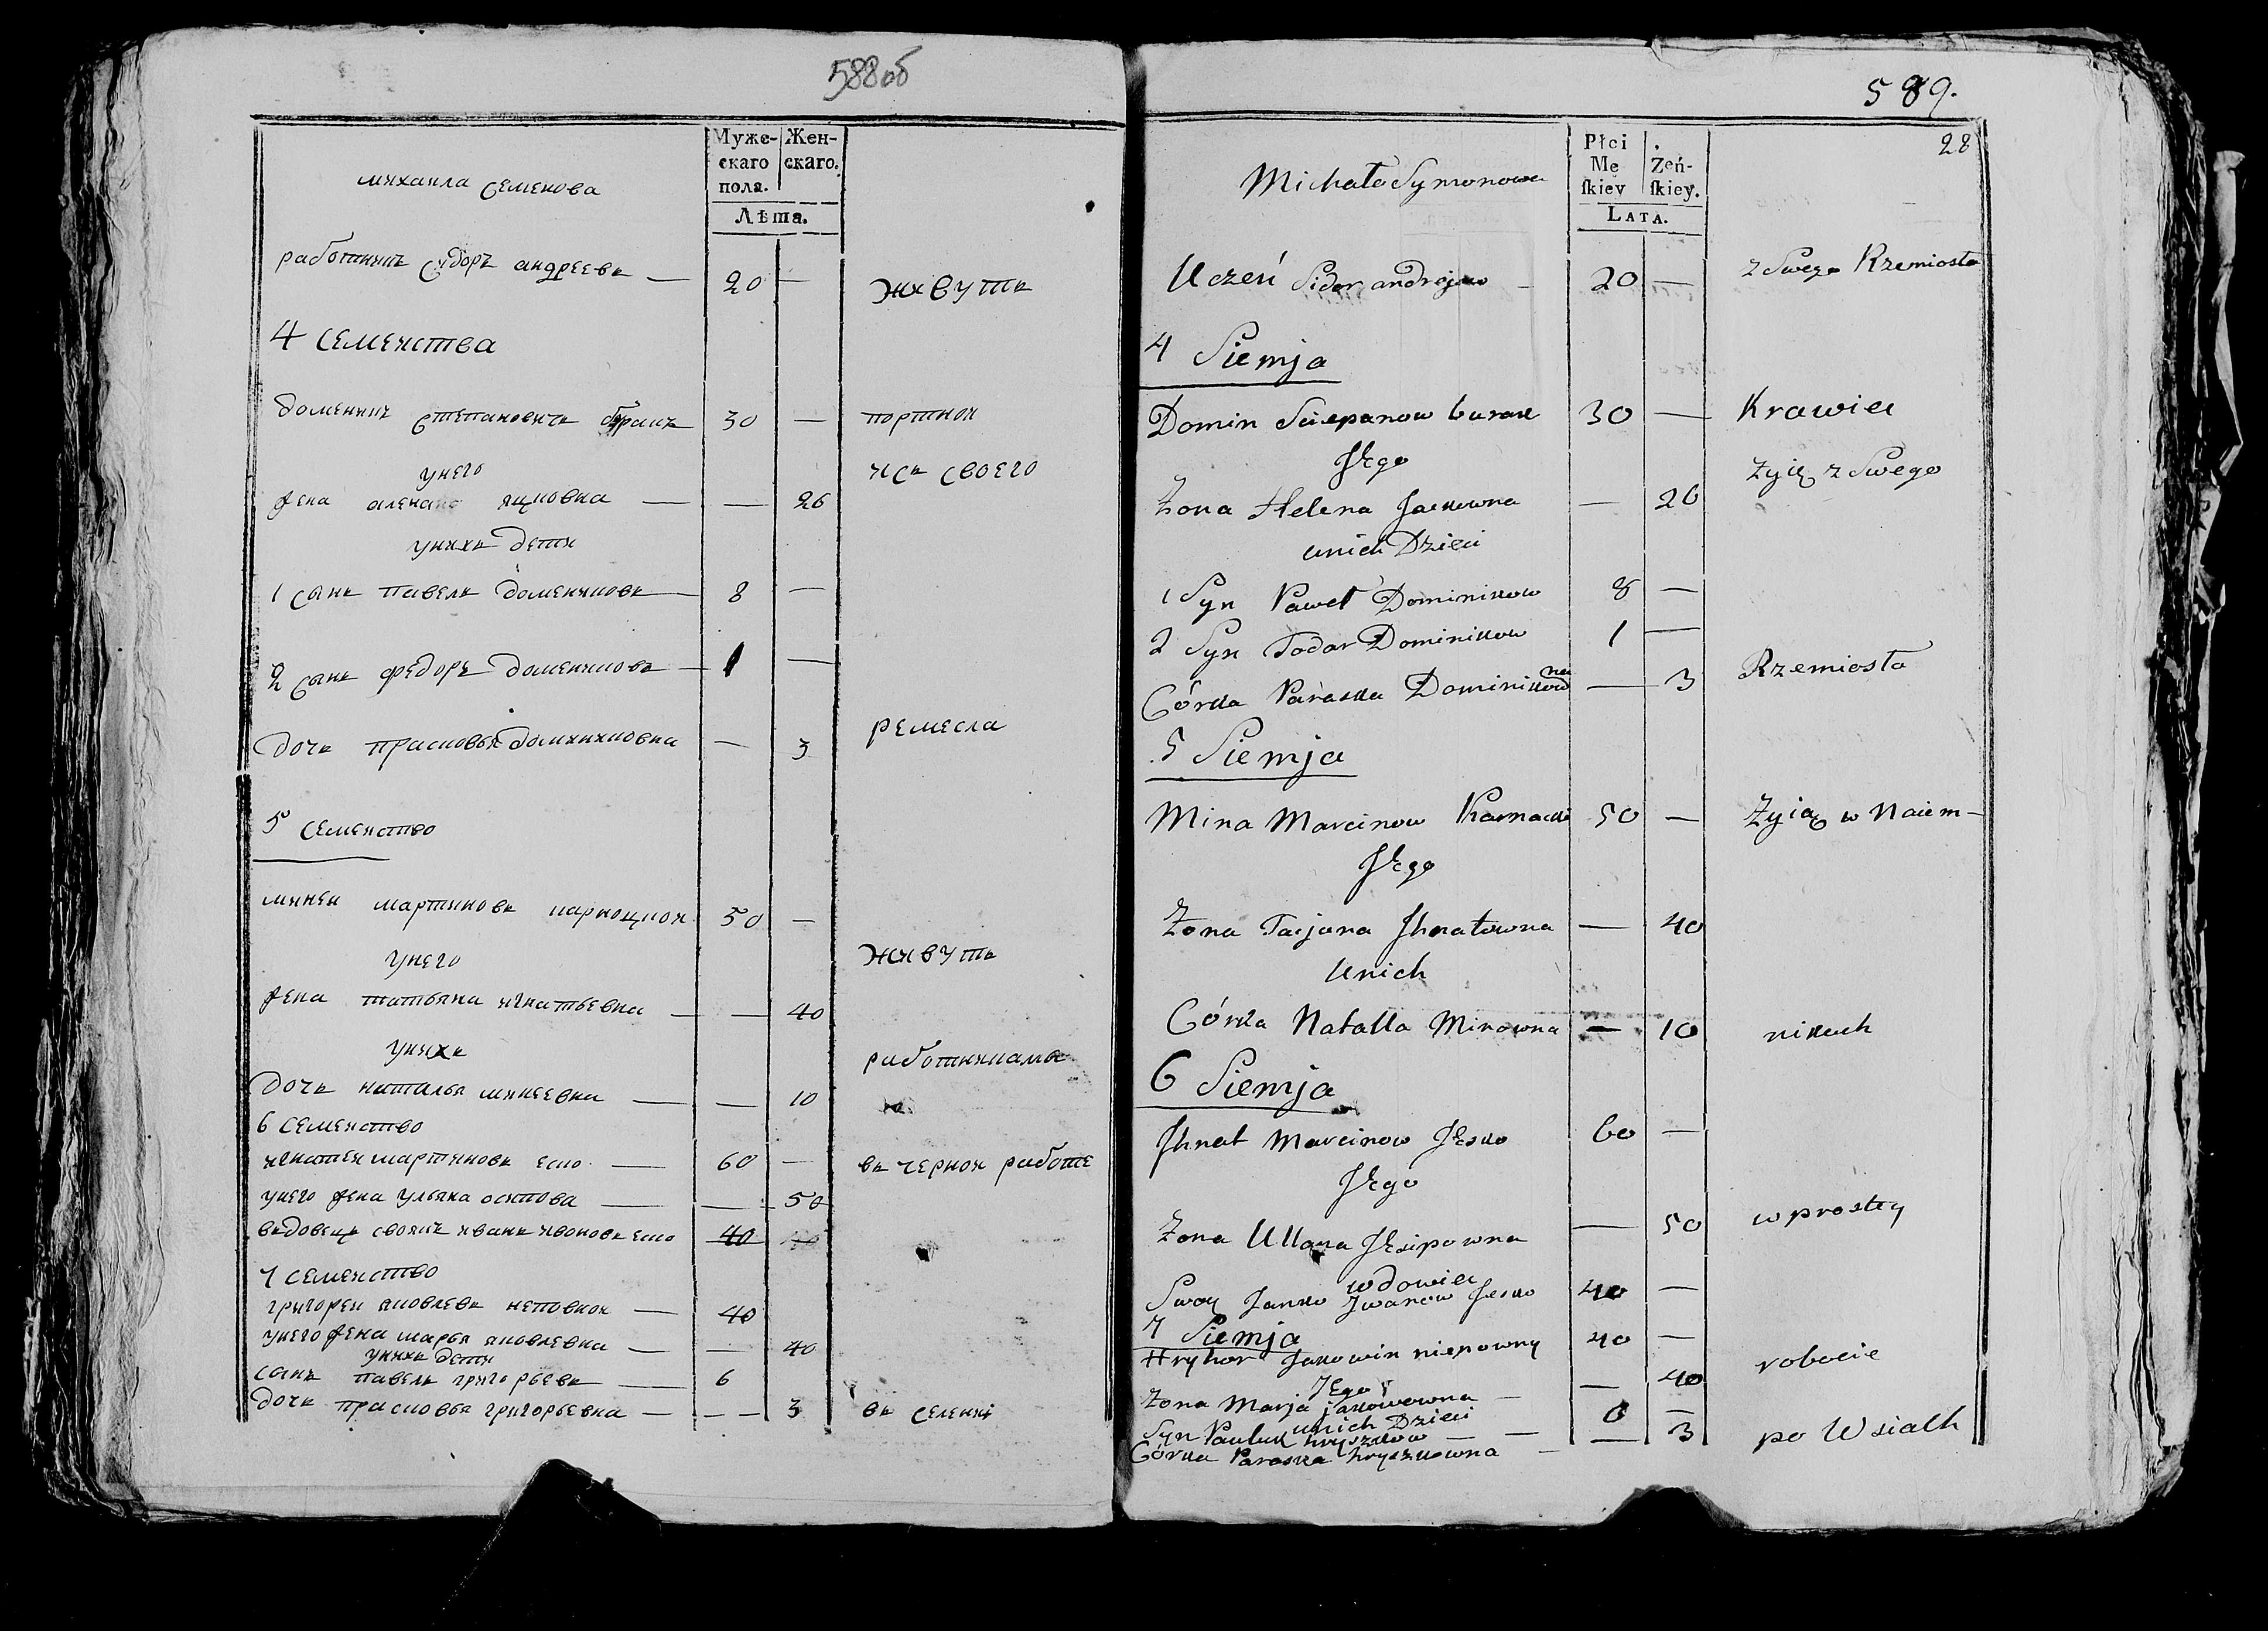 588об
Муже- Жен-
скаго скаго.
пола.
Лѣта.
михаила семенова
работникъ сидоръ андреевъ — 20 — живутъ
4 семейства
доменикъ степановичъ буракъ 30 — портной
унего изъ своего
жена алена яцковна — — 26
унихъ дети
1 сынъ павелъ домениковъ — 8 —
2 сынъ федоръ домениковъ — 1 —
дочь прасковья доминиковна — 3 ремесла
5 семейство
миней мартиновъ карнацкой 50 —
унего живутъ
жена татьяна игнатьевна — — 40
унихъ работниками
дочь наталья минеевна — — 10
6 семейство
игнатей мартиновъ еско — 60 — въ черной работе
унего жена ульяна осипова — — 50
вдовецъ своякъ иванъ ивановъ еско 40
7 семейство
григорей яковлевъ неповной — 40
унего жена марья яковлевна — — 40
унихъ дети
сынъ павелъ григорьевъ — 6
дочь прасковья григорьевна — — 3 въ селении
589.
28
Płci
Mę Żeń-
ſkiey ſkiey.
LATA.
Michała Symonowa
Uczeń Sidor andrejew — 20 — z Swego Rzemiosła
4 Siemja
Domin Sciepanow burak 30 — Krawiec
Jego Żyią z Swego
Żona Helena Jackowna — 26
unich Dzieci
1 Syn Paweł Dominikow 8 —
2 Syn Todar Dominikow 1 —
Córka Paraska Dominikowna — 3 Rzemiosła
5 Siemja
Mina Marcinow Karnacki 50 — Żyią w Naiem-
Jego
Żona Tacjana Jhnatowna — 40
Unich
Córka Natalla Minowna — 10 nikach
6 Siemja
Jhnat Marcinow Jesko 60 —
Jego
Żona Ullana Jesipowna — 50 w prostey
wdowiec
Swoy Janko Jwanow Jesko 40 —
7 Siemja
Hryhor Jakowin niepowny 40 — robocie
Jego
Żona Marja jakowowna — — 40
unich Dzieci
Syn Pauluk hryszkow — — 6 —
Córka Paraska hryszkowna — — 3 po Wsiach